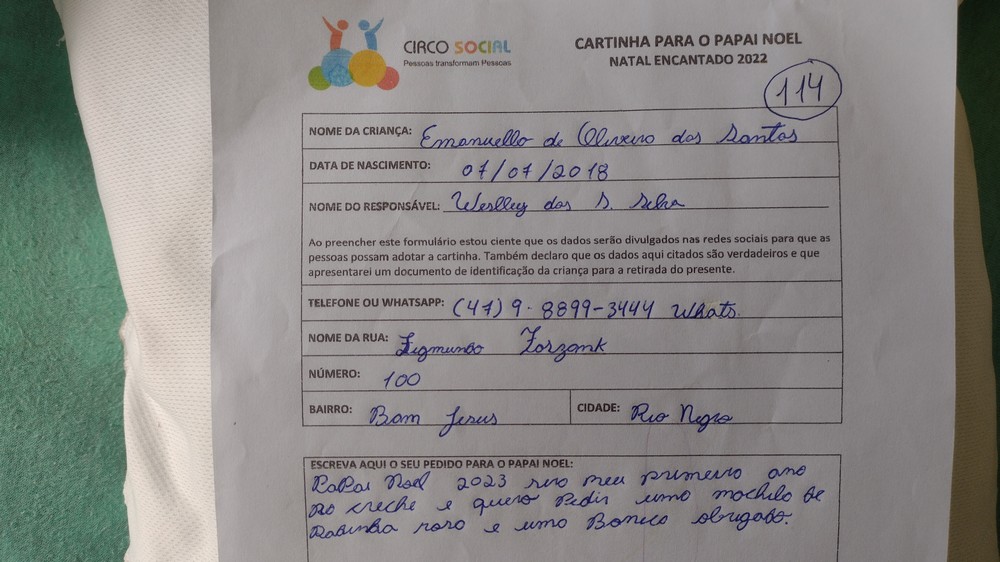 CIRCO SOCIAL
Pessoas transformam Pessoas
CARTINHA PARA O PAPAI NOEL
NATAL ENCANTADO 2022
114
NOME DA CRIANÇA: Emanuella de Oliveira dos Santos
DATA DE NASCIMENTO: 07/07/2018
NOME DO RESPONSÁVEL: Weslley dos S. Silva
Ao preencher este formulário estou ciente que os dados serão divulgados nas redes sociais para que as
pessoas possam adotar a cartinha. Também declaro que os dados aqui citados são verdadeiros e que
apresentarei um documento de identificação da criança para a retirada do presente.
TELEFONE OU WHATSAPP: (47) 9.8899-3444 Whats.
NOME DA RUA: Zigmundo
NÚMERO: 100
BAIRRO: Bom Jesus CIDADE: Rio Negro
ESCREVA AQUI O SEU PEDIDO PARA O PAPAI NOEL:
PaPai Noel 2023 sera meu primeiro ano
na creche e quero Pedir uma mochila de
Rodinha rosa e uma Boneca obrigado.